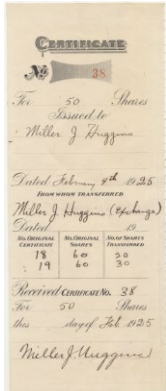 CERTIFICATE
No 38
For 50 Shares
Issued to
Miller J Huggins
Dated February 9th 1925
FROM WHOM TRANSFERRED
Miller J Huggins (exchange)
Dated 19
NO. ORIGINAL CERTIFICATE NO. ORIGINAL SHARES NO. OF SHARES TRANSFERRED
18 60 20
19 60 30
Received CERTIFICATE No. 38
For 50 Shares
this day of Feb 1925
Miller J. Huggins